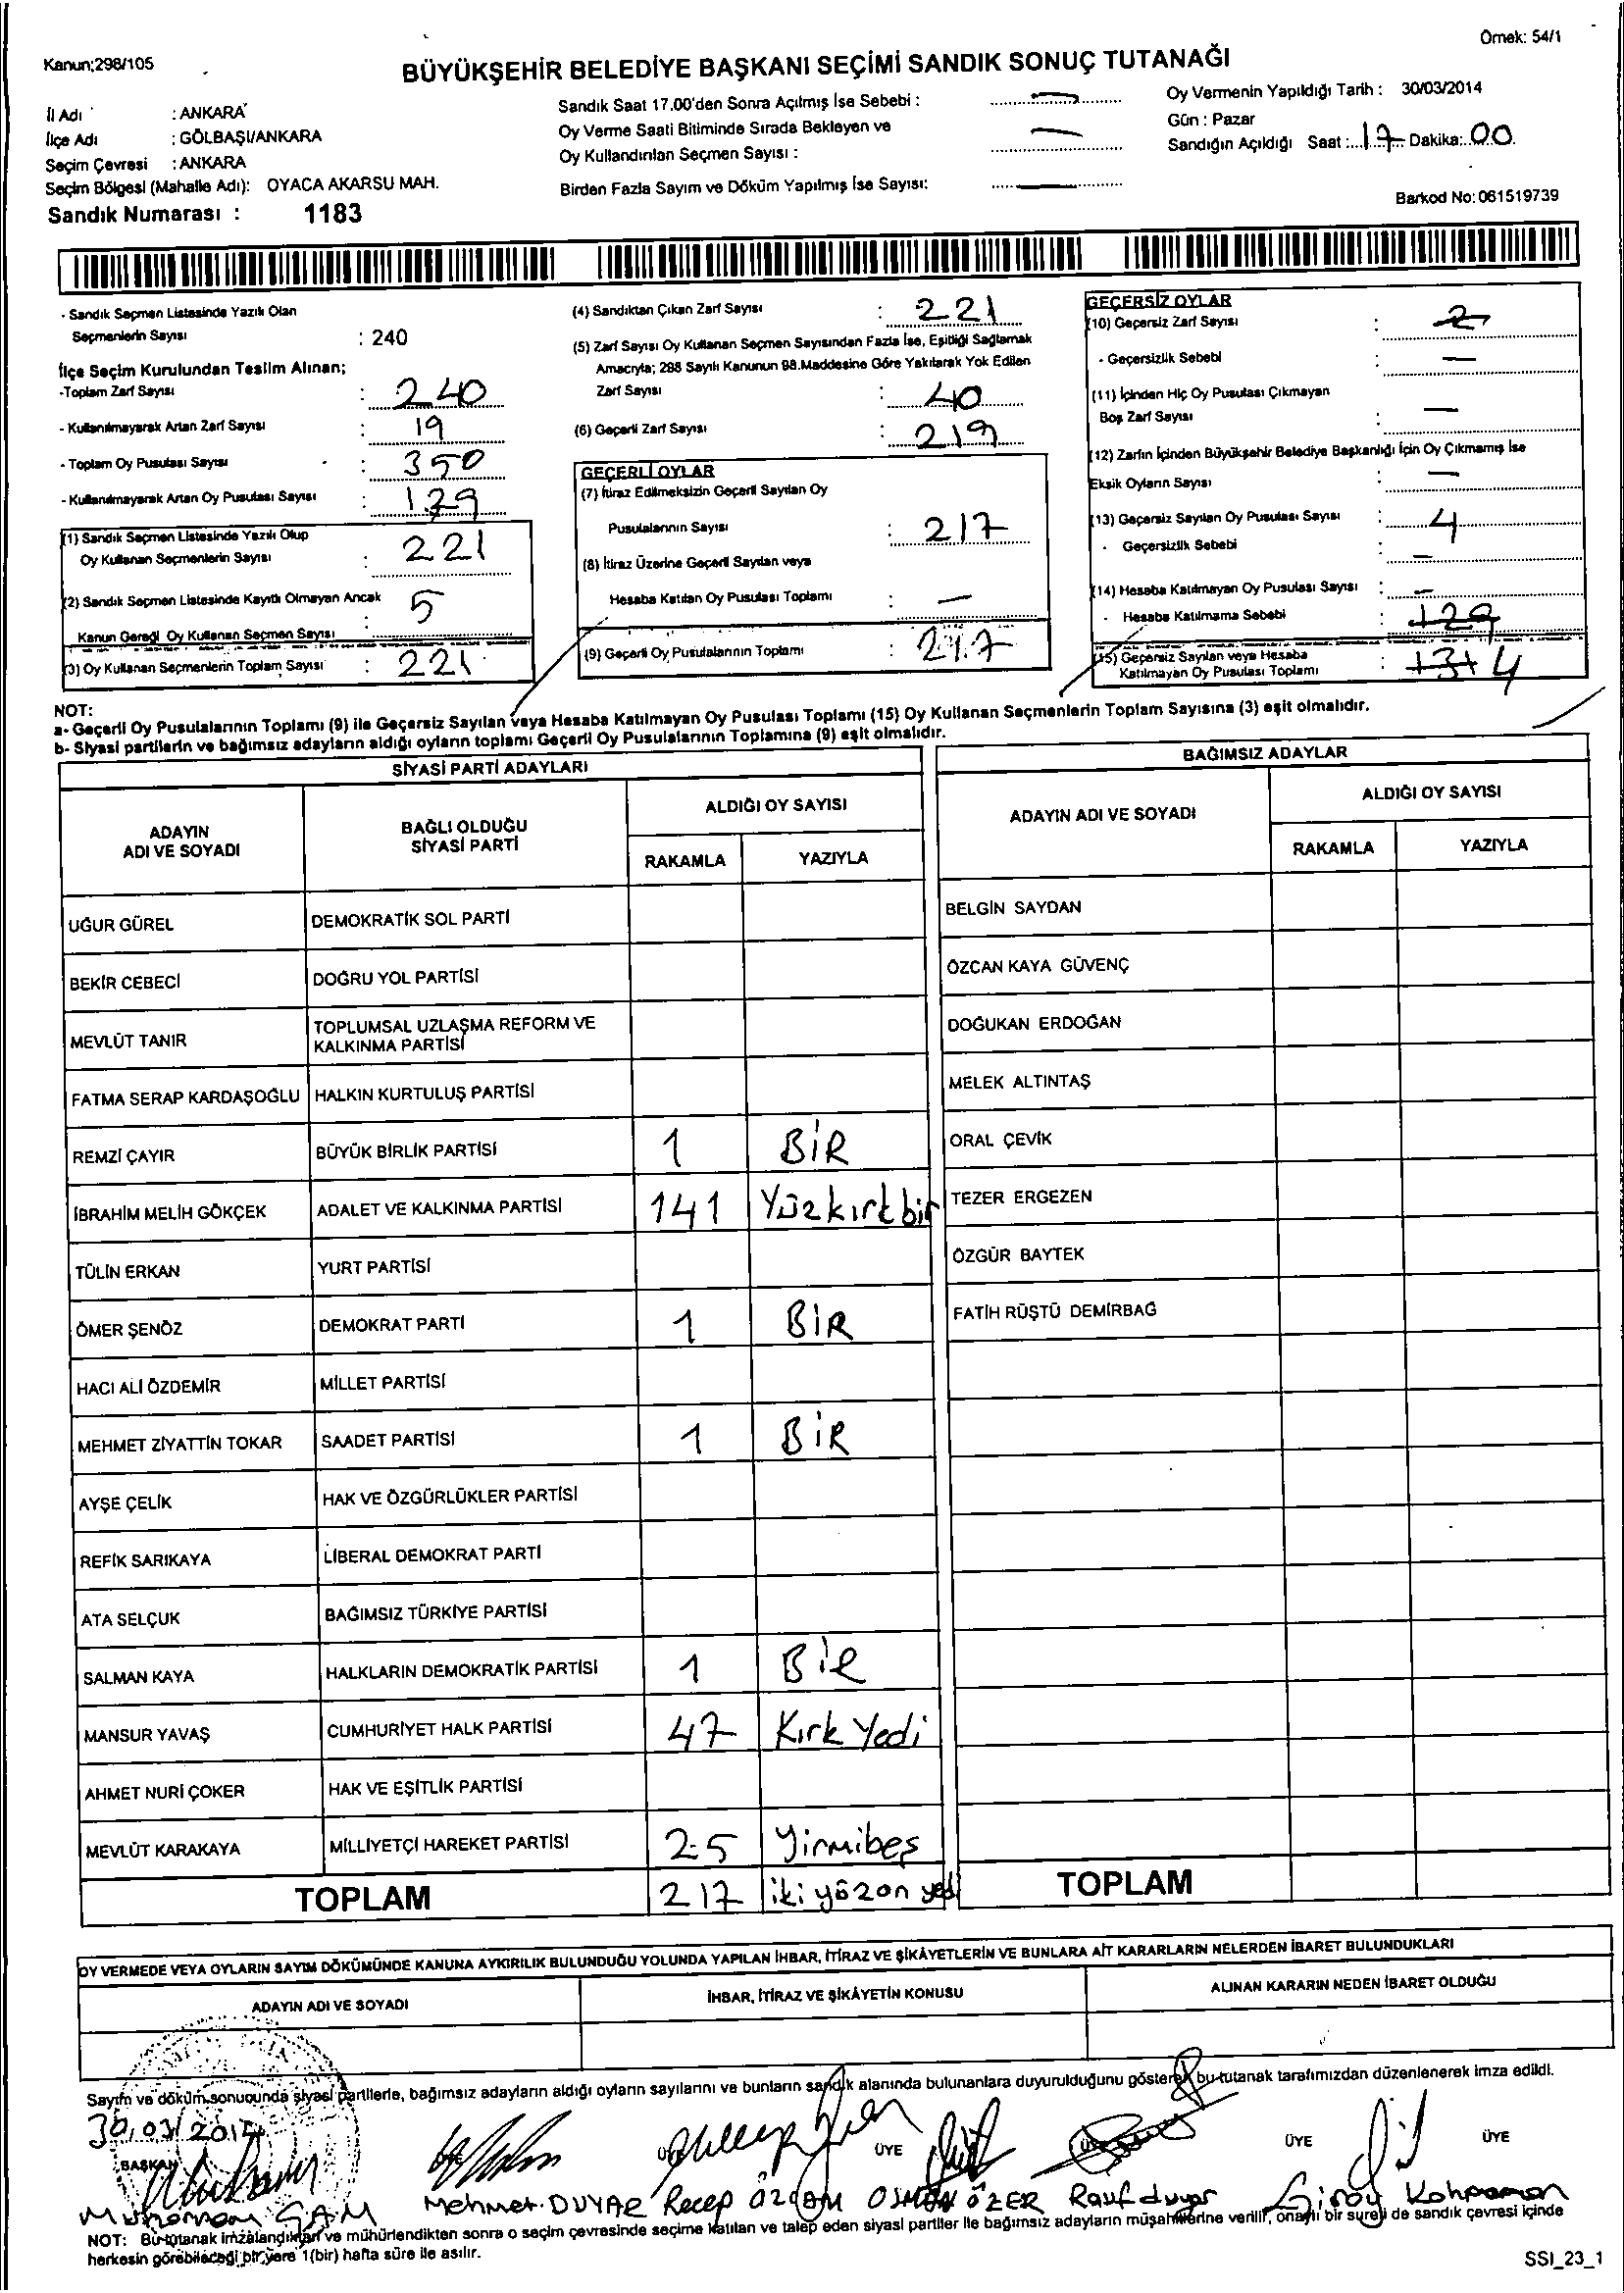 Örnek: 54/1
Kanun;298/105
BÜYÜKŞEHİR BELEDİYE BAŞKANI SEÇİMİ SANDIK SONUÇ TUTANAĞI
İl Adı : ANKARA
İlçe Adı : GÖLBAŞI/ANKARA
Seçim Çevresi : ANKARA
Seçim Bölgesi (Mahalle Adı): OYACA AKARSU MAH.
Sandık Numarası : 1183
Sandık Saat 17.00'den Sonra Açılmış İse Sebebi :
Oy Verme Saati Bitiminde Sırada Bekleyen ve
Oy Kullandırılan Seçmen Sayısı :
Birden Fazla Sayım ve Döküm Yapılmış İse Sayısı:
Oy Vermenin Yapıldığı Tarih : 30/03/2014
Gün : Pazar
Sandığın Açıldığı Saat : 17 Dakika: 00
Barkod No: 061519739
- Sandık Seçmen Listesinde Yazılı Olan
Seçmenlerin Sayısı : 240
İlçe Seçim Kurulundan Teslim Alınan;
-Toplam Zarf Sayısı : 240
- Kullanılmayarak Artan Zarf Sayısı : 19
- Toplam Oy Pusulası Sayısı : 350
- Kullanılmayarak Artan Oy Pusulası Sayısı : 129
(1) Sandık Seçmen Listesinde Yazılı Olup
Oy Kullanan Seçmenlerin Sayısı : 221
(2) Sandık Seçmen Listesinde Kayıtlı Olmayan Ancak
Kanun Gereği Oy Kullanan Seçmen Sayısı : 5
(3) Oy Kullanan Seçmenlerin Toplam Sayısı : 221
(4) Sandıktan Çıkan Zarf Sayısı : 221
(5) Zarf Sayısı Oy Kullanan Seçmen Sayısından Fazla İse, Eşitliği Sağlamak
Amacıyla; 298 Sayılı Kanunun 98.Maddesine Göre Yakılarak Yok Edilen
Zarf Sayısı : 40
(6) Geçerli Zarf Sayısı : 219
GEÇERLİ OYLAR
(7) İtiraz Edilmeksizin Geçerli Sayılan Oy
Pusulalarının Sayısı : 217
(8) İtiraz Üzerine Geçerli Sayılan veya
Hesaba Katılan Oy Pusulası Toplamı : —
(9) Geçerli Oy Pusulalarının Toplamı : 217
GEÇERSİZ OYLAR
(10) Geçersiz Zarf Sayısı : 2
- Geçersizlik Sebebi : —
(11) İçinden Hiç Oy Pusulası Çıkmayan
Boş Zarf Sayısı : —
(12) Zarfın İçinden Büyükşehir Belediye Başkanlığı İçin Oy Çıkmamış İse
Eksik Oyların Sayısı : —
(13) Geçersiz Sayılan Oy Pusulası Sayısı : 4
- Geçersizlik Sebebi : —
(14) Hesaba Katılmayan Oy Pusulası Sayısı : —
- Hesaba Katılmama Sebebi : 129
(15) Geçersiz Sayılan veya Hesaba
Katılmayan Oy Pusulası Toplamı : 4
NOT:
a- Geçerli Oy Pusulalarının Toplamı (9) ile Geçersiz Sayılan veya Hesaba Katılmayan Oy Pusulası Toplamı (15) Oy Kullanan Seçmenlerin Toplam Sayısına (3) eşit olmalıdır.
b- Siyasi partilerin ve bağımsız adayların aldığı oyların toplamı Geçerli Oy Pusulalarının Toplamına (9) eşit olmalıdır.
SİYASİ PARTİ ADAYLARI
ADAYIN ADI VE SOYADI
BAĞLI OLDUĞU SİYASİ PARTİ
ALDIĞI OY SAYISI
RAKAMLA YAZIYLA
UĞUR GÜREL DEMOKRATİK SOL PARTİ
BEKİR CEBECİ DOĞRU YOL PARTİSİ
MEVLÜT TANIR TOPLUMSAL UZLAŞMA REFORM VE KALKINMA PARTİSİ
FATMA SERAP KARDAŞOĞLU HALKIN KURTULUŞ PARTİSİ
REMZİ ÇAYIR BÜYÜK BİRLİK PARTİSİ 1 BİR
İBRAHİM MELİH GÖKÇEK ADALET VE KALKINMA PARTİSİ 141 Yüzkırkbir
TÜLİN ERKAN YURT PARTİSİ
ÖMER ŞENÖZ DEMOKRAT PARTİ 1 BİR
HACI ALİ ÖZDEMİR MİLLET PARTİSİ
MEHMET ZİYATTİN TOKAR SAADET PARTİSİ 1 BİR
AYŞE ÇELİK HAK VE ÖZGÜRLÜKLER PARTİSİ
REFİK SARIKAYA LİBERAL DEMOKRAT PARTİ
ATA SELÇUK BAĞIMSIZ TÜRKİYE PARTİSİ
SALMAN KAYA HALKLARIN DEMOKRATİK PARTİSİ 1 BİR
MANSUR YAVAŞ CUMHURİYET HALK PARTİSİ 47 Kırk Yedi
AHMET NURİ ÇOKER HAK VE EŞİTLİK PARTİSİ
MEVLÜT KARAKAYA MİLLİYETÇİ HAREKET PARTİSİ 25 Yirmibeş
TOPLAM 217 iki yüzon yedi
BAĞIMSIZ ADAYLAR
ADAYIN ADI VE SOYADI
ALDIĞI OY SAYISI
RAKAMLA YAZIYLA
BELGİN SAYDAN
ÖZCAN KAYA GÜVENÇ
DOĞUKAN ERDOĞAN
MELEK ALTINTAŞ
ORAL ÇEVİK
TEZER ERGEZEN
ÖZGÜR BAYTEK
FATİH RÜŞTÜ DEMİRBAĞ
TOPLAM
OY VERMEDE VEYA OYLARIN SAYIM DÖKÜMÜNDE KANUNA AYKIRILIK BULUNDUĞU YOLUNDA YAPILAN İHBAR, İTİRAZ VE ŞİKÂYETLERİN VE BUNLARA AİT KARARLARIN NELERDEN İBARET BULUNDUKLARI
ADAYIN ADI VE SOYADI
İHBAR, İTİRAZ VE ŞİKÂYETİN KONUSU
ALINAN KARARIN NEDEN İBARET OLDUĞU
Sayım ve döküm sonucunda siyasi partilerle, bağımsız adayların aldığı oyların sayılarını ve bunların sandık alanında bulunanlara duyurulduğunu gösterek bu tutanak tarafımızdan düzenlenerek imza edildi.
30.03/2014
BAŞKAN ÜYE ÜYE ÜYE
Muharrem ÇAM Mehmet DUYAR Recep ÖZCAN OSMAN ÖZER Rauf duyar Giray Kahraman
NOT: Bu tutanak imzalandıktan ve mühürlendikten sonra o seçim çevresinde seçime katılan ve talep eden siyasi partiler ile bağımsız adayların müşahitlerine verilir, onaylı bir sureti de sandık çevresi içinde
herkesin görebileceği bir yere 1(bir) hafta süre ile asılır.
SSI_23_1